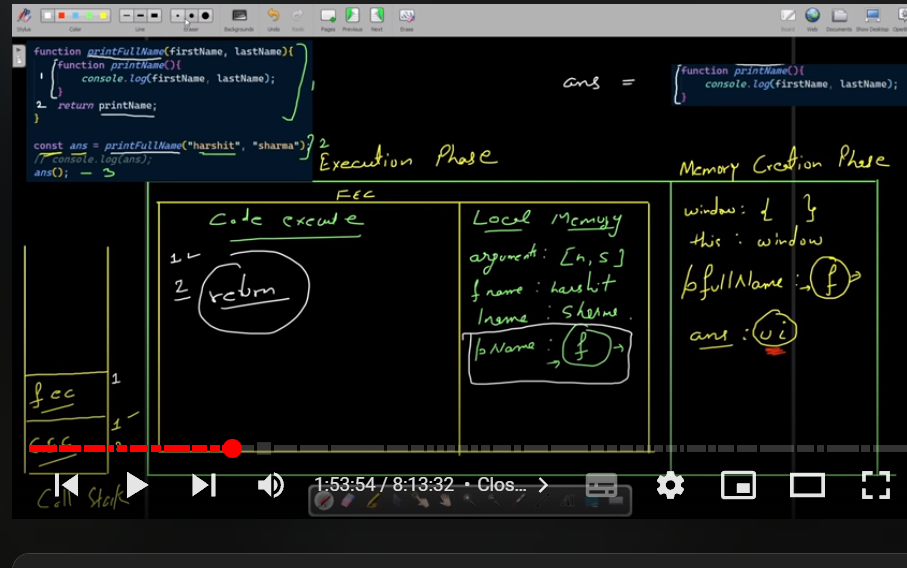 Stylus Color Line Eraser Backgrounds Undo Tools Pages Previous Next Erase Board Web Documents Show Desktop
function printFullName(firstName, lastName){
1 function printName(){
console.log(firstName, lastName);
}
2 return printName;
}
1
const ans = printFullName("harshit", "sharma"); 2
// console.log(ans);
ans(); - 3
ans =
function printName(){
console.log(firstName, lastName);
}
Execution Phase
Memory Creation Phase
FEC
Code execute
1
2 return
Local Memory
arguments: [h, s]
fname : harshit
lname : Sharma.
pName : f
window: { }
this : window
pfullName : f
ans : ui
fec 1
1
Call Stack
1:53:54 / 8:13:32 • Clos...